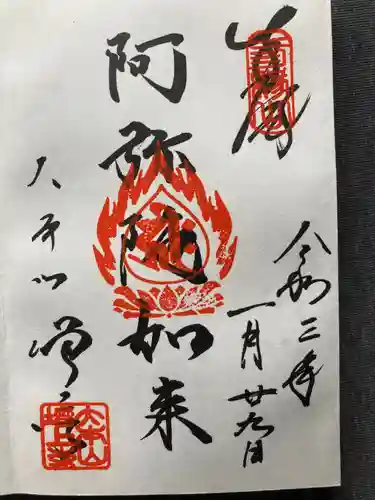 奉拝
令和三年
一月廿九日
阿弥陀如来
大平山